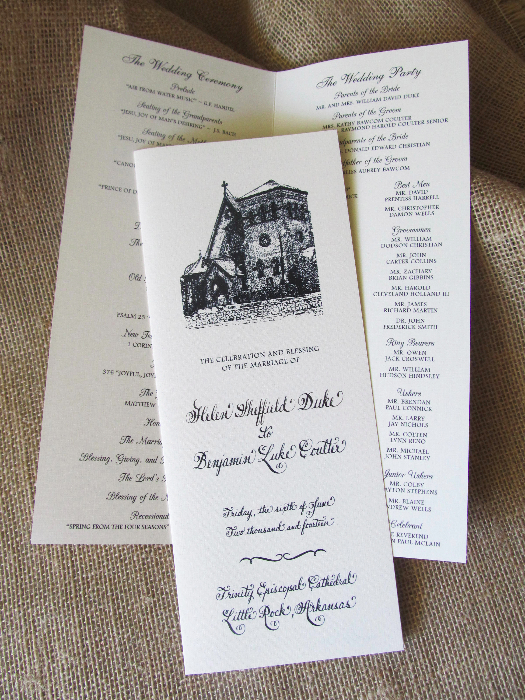 The Wedding Ceremony
Prelude
"AIR FROM WATER MUSIC" – G.F. HANDEL
Seating of the Grandparents
"JESU, JOY OF MAN'S DESIRING" – J.S. BACH
Seating of the
"JESU, JOY OF
"CANO
"PRINCE OF D
The
Old
PSALM 23
New
1 CORIN
376 "JOYFUL, JOY
The
MATTHEW
Hom
The Marri
Blessing, Giving, and
The Lord's
Blessing of the
Recessional
"SPRING FROM THE FOUR SEASONS"
The Wedding Party
Parents of the Bride
MR. AND MRS. WILLIAM DAVID DUKE
Parents of the Groom
MRS. KATHY BAWCOM COULTER
RAYMOND HAROLD COULTER SENIOR
parents of the Bride
DONALD EDWARD CHRISTIAN
father of the Groom
AUBREY BAWCOM
Best Men
MR. DAVID
PRENTISS HARRELL
MR. CHRISTOPHER
DAMON WELLS
Groomsmen
MR. WILLIAM
DODSON CHRISTIAN
MR. JOHN
CARTER COLLINS
MR. ZACHARY
BRIAN GIBBINS
MR. HAROLD
CLEVELAND HOLLAND III
MR. JAMES
RICHARD MARTIN
DR. JOHN
FREDERICK SMITH
Ring Bearers
MR. OWEN
JACK CROSWELL
MR. WILLIAM
HUDSON HINDSLEY
Ushers
MR. BRENDAN
PAUL CONNICK
MR. LARRY
JAY NICHOLS
MR. COTTEN
LYNN RENO
MR. MICHAEL
JOHN STANLEY
Junior Ushers
MR. COLBY
YTON STEPHENS
MR. BLAINE
DREW WELLS
Celebrant
REVEREND
N PAUL MCLAIN
THE CELEBRATION AND BLESSING
OF THE MARRIAGE OF
Helen Sheffield Duke
to
Benjamin Luke Coulter
Friday, the sixth of June
Two thousand and fourteen
Trinity Episcopal Cathedral
Little Rock, Arkansas